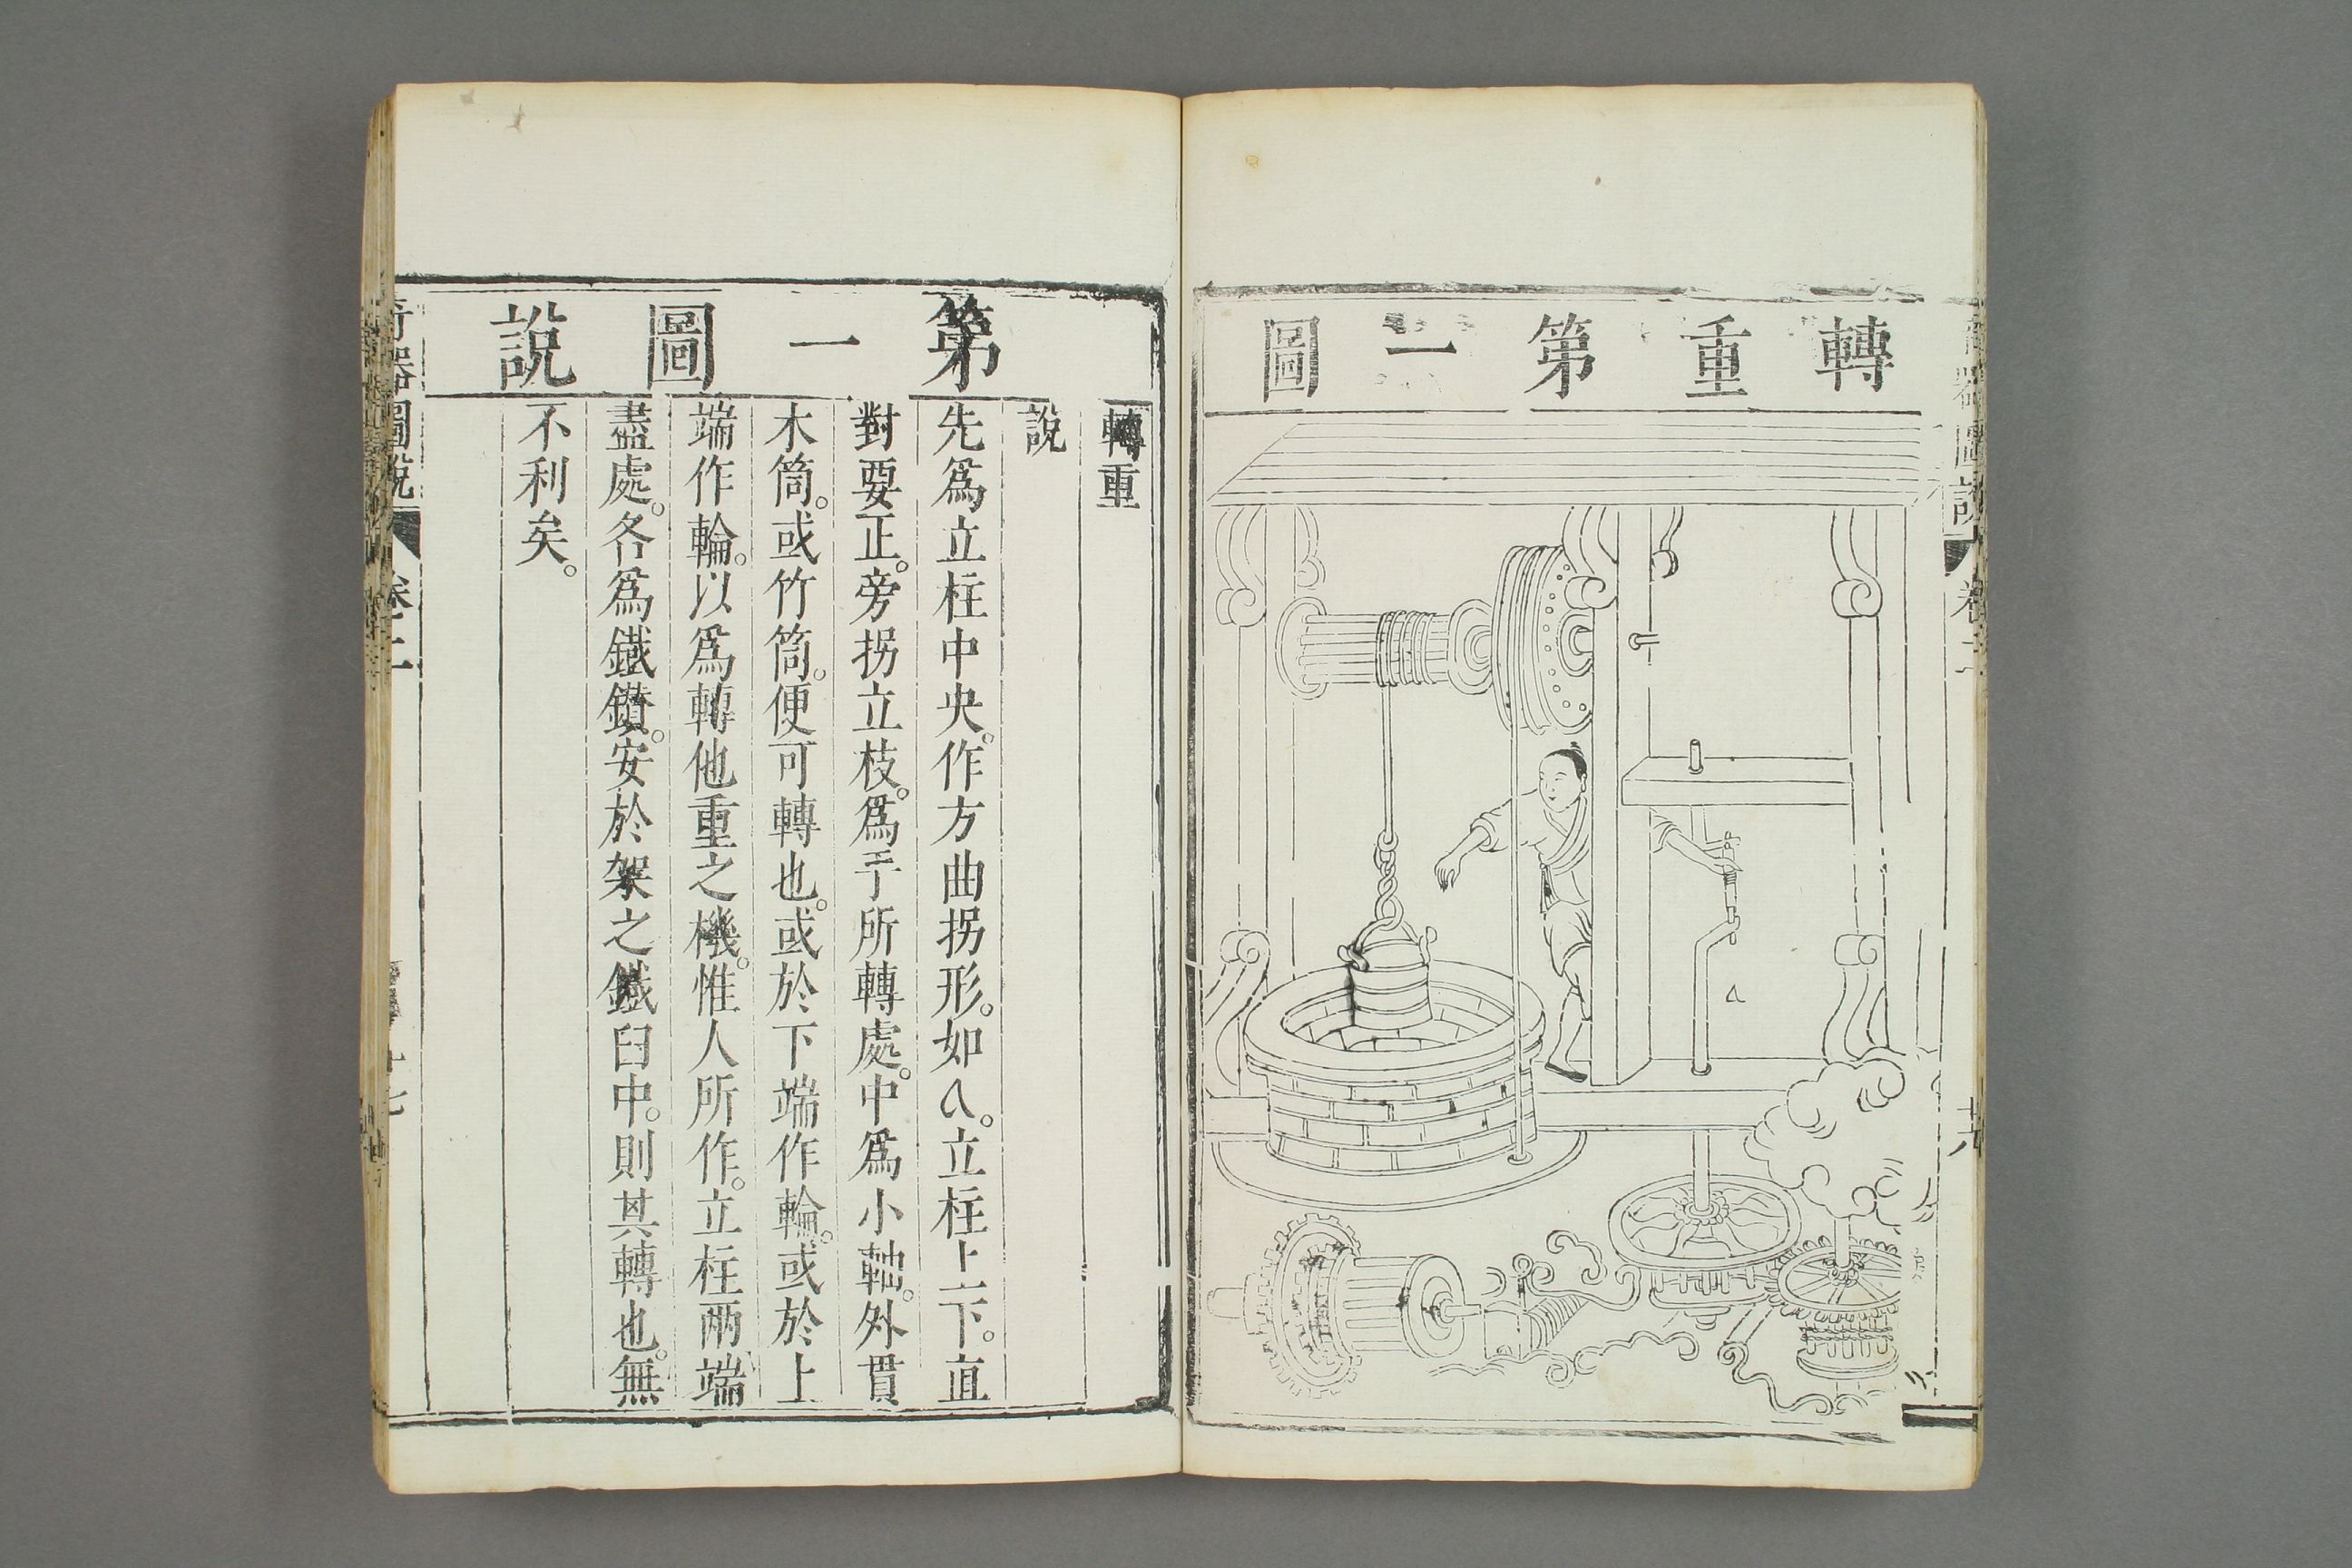 轉重第一圖
第一圖說
轉重
說
先爲立柱中央。作方曲拐形。如a。立柱上下。直
對要正。旁拐立枝。爲手所轉處。中爲小軸。外貫
木筒。或竹筒。便可轉也。或於下端作輪。或於上
端作輪。以爲轉他重之機。惟人所作。立柱兩端
盡處。各爲鐵鑚。安於架之鐵臼中。則其轉也。無
不利矣。
奇器圖說
卷二
十七